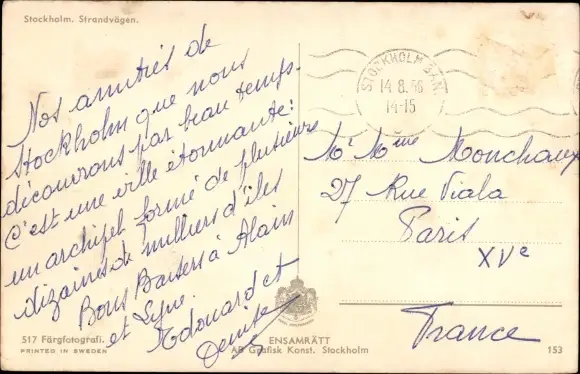 Stockholm. Strandvägen.
Nos amitiés de
Stockholm que nous
découvrons par beau temps.
C'est une ville étonnante:
un archipel formé de plusieurs
dizaines de milliers d'îles
Bons Baisers à Alain
et
Edouard et
Denise
STOCKHOLM BAN
14.8.56
14-15
Mr Mme Monchaux
27 Rue Viala
Paris
XVe
France
517 Färgfotografi.
PRINTED IN SWEDEN
ENSAMRÄTT
AB Grafisk Konst. Stockholm
153